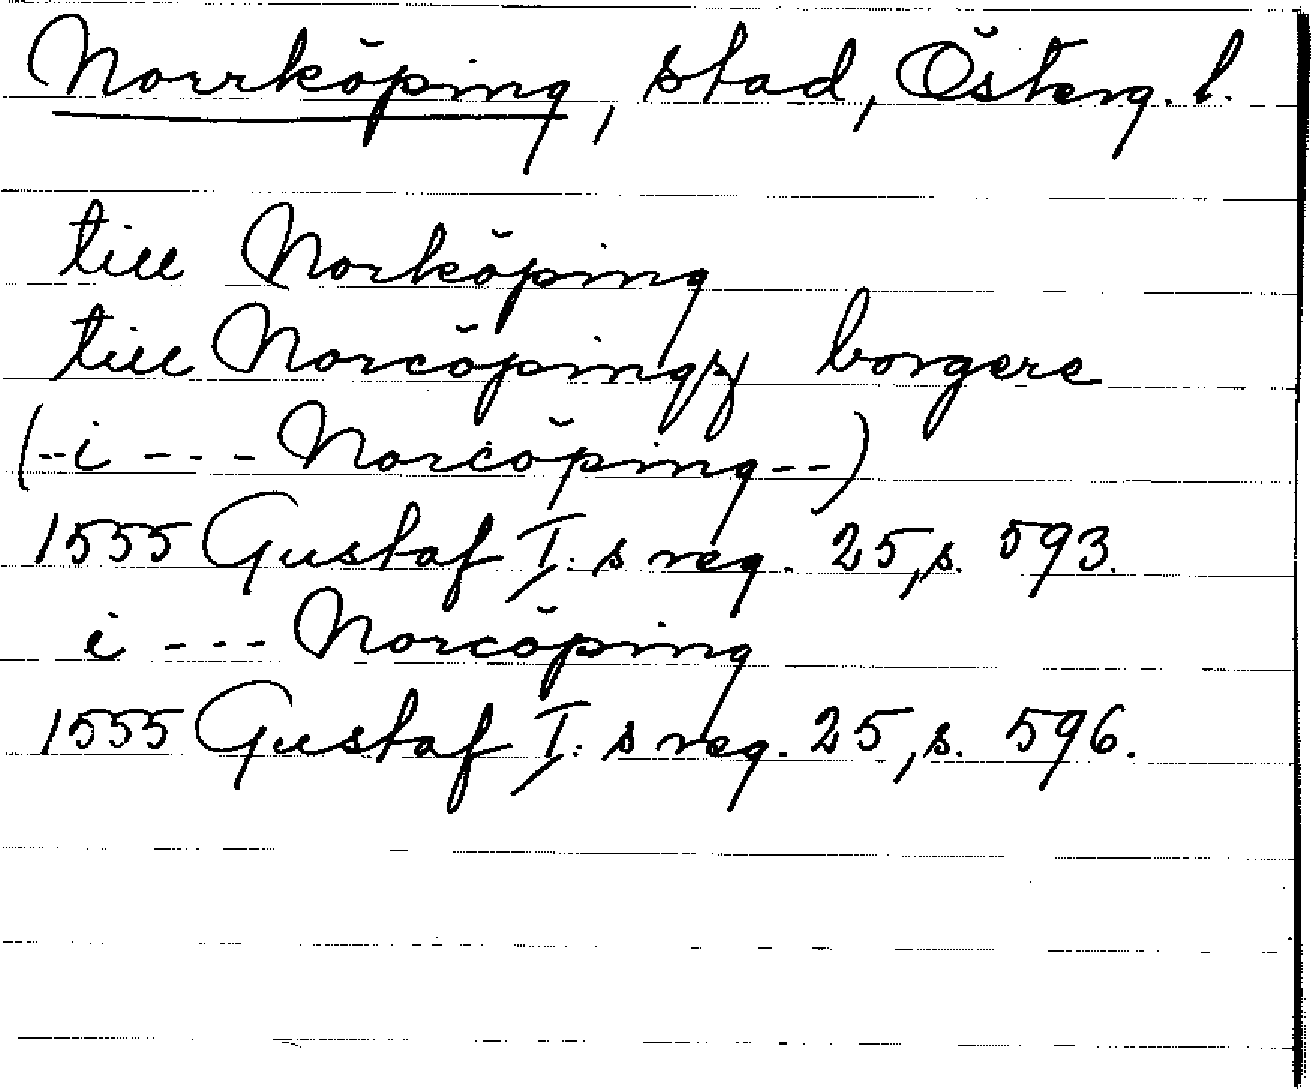 Norrköping, stad, Österg. l.
till Norköping
till Norcöpingz borgere
(--i --- Norcöping--)
1555 Gustaf I:s reg. 25, s. 593.
i --- Norcöping
1555 Gustaf I:s reg. 25, s. 596.